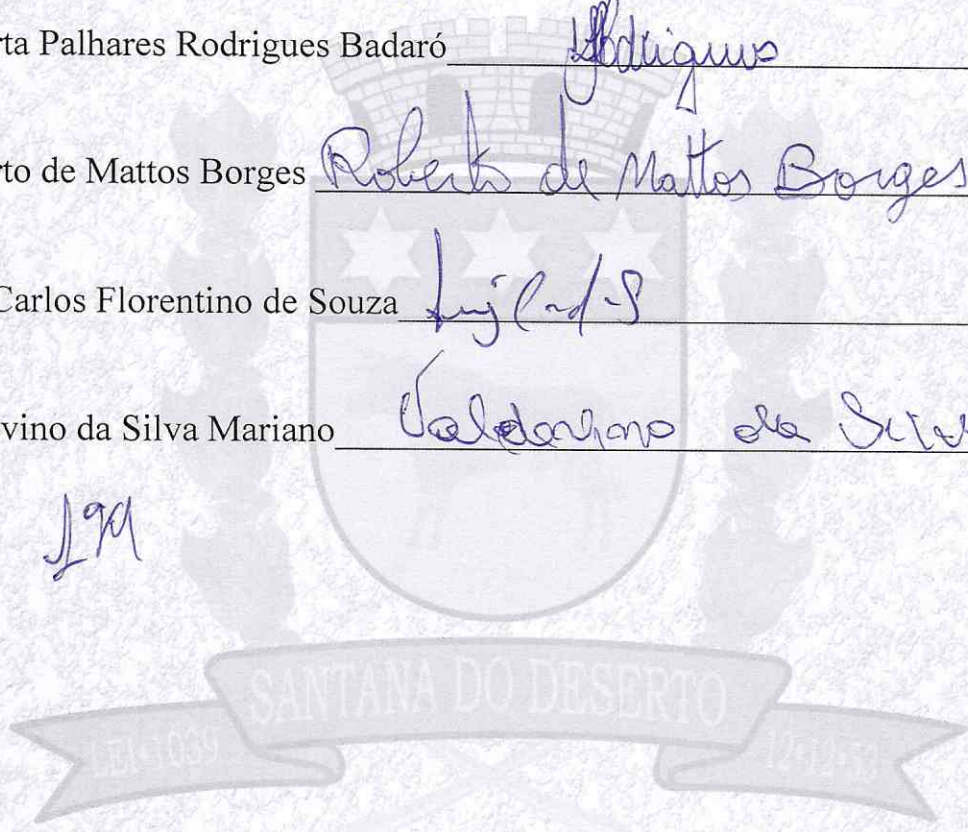 rta Palhares Rodrigues Badaró Rodrigues
rto de Mattos Borges Roberto de Mattos Borges
Carlos Florentino de Souza Luiz
vino da Silva Mariano da Silva
SANTANA DO DESERTO
LEI•1039
12•12•53